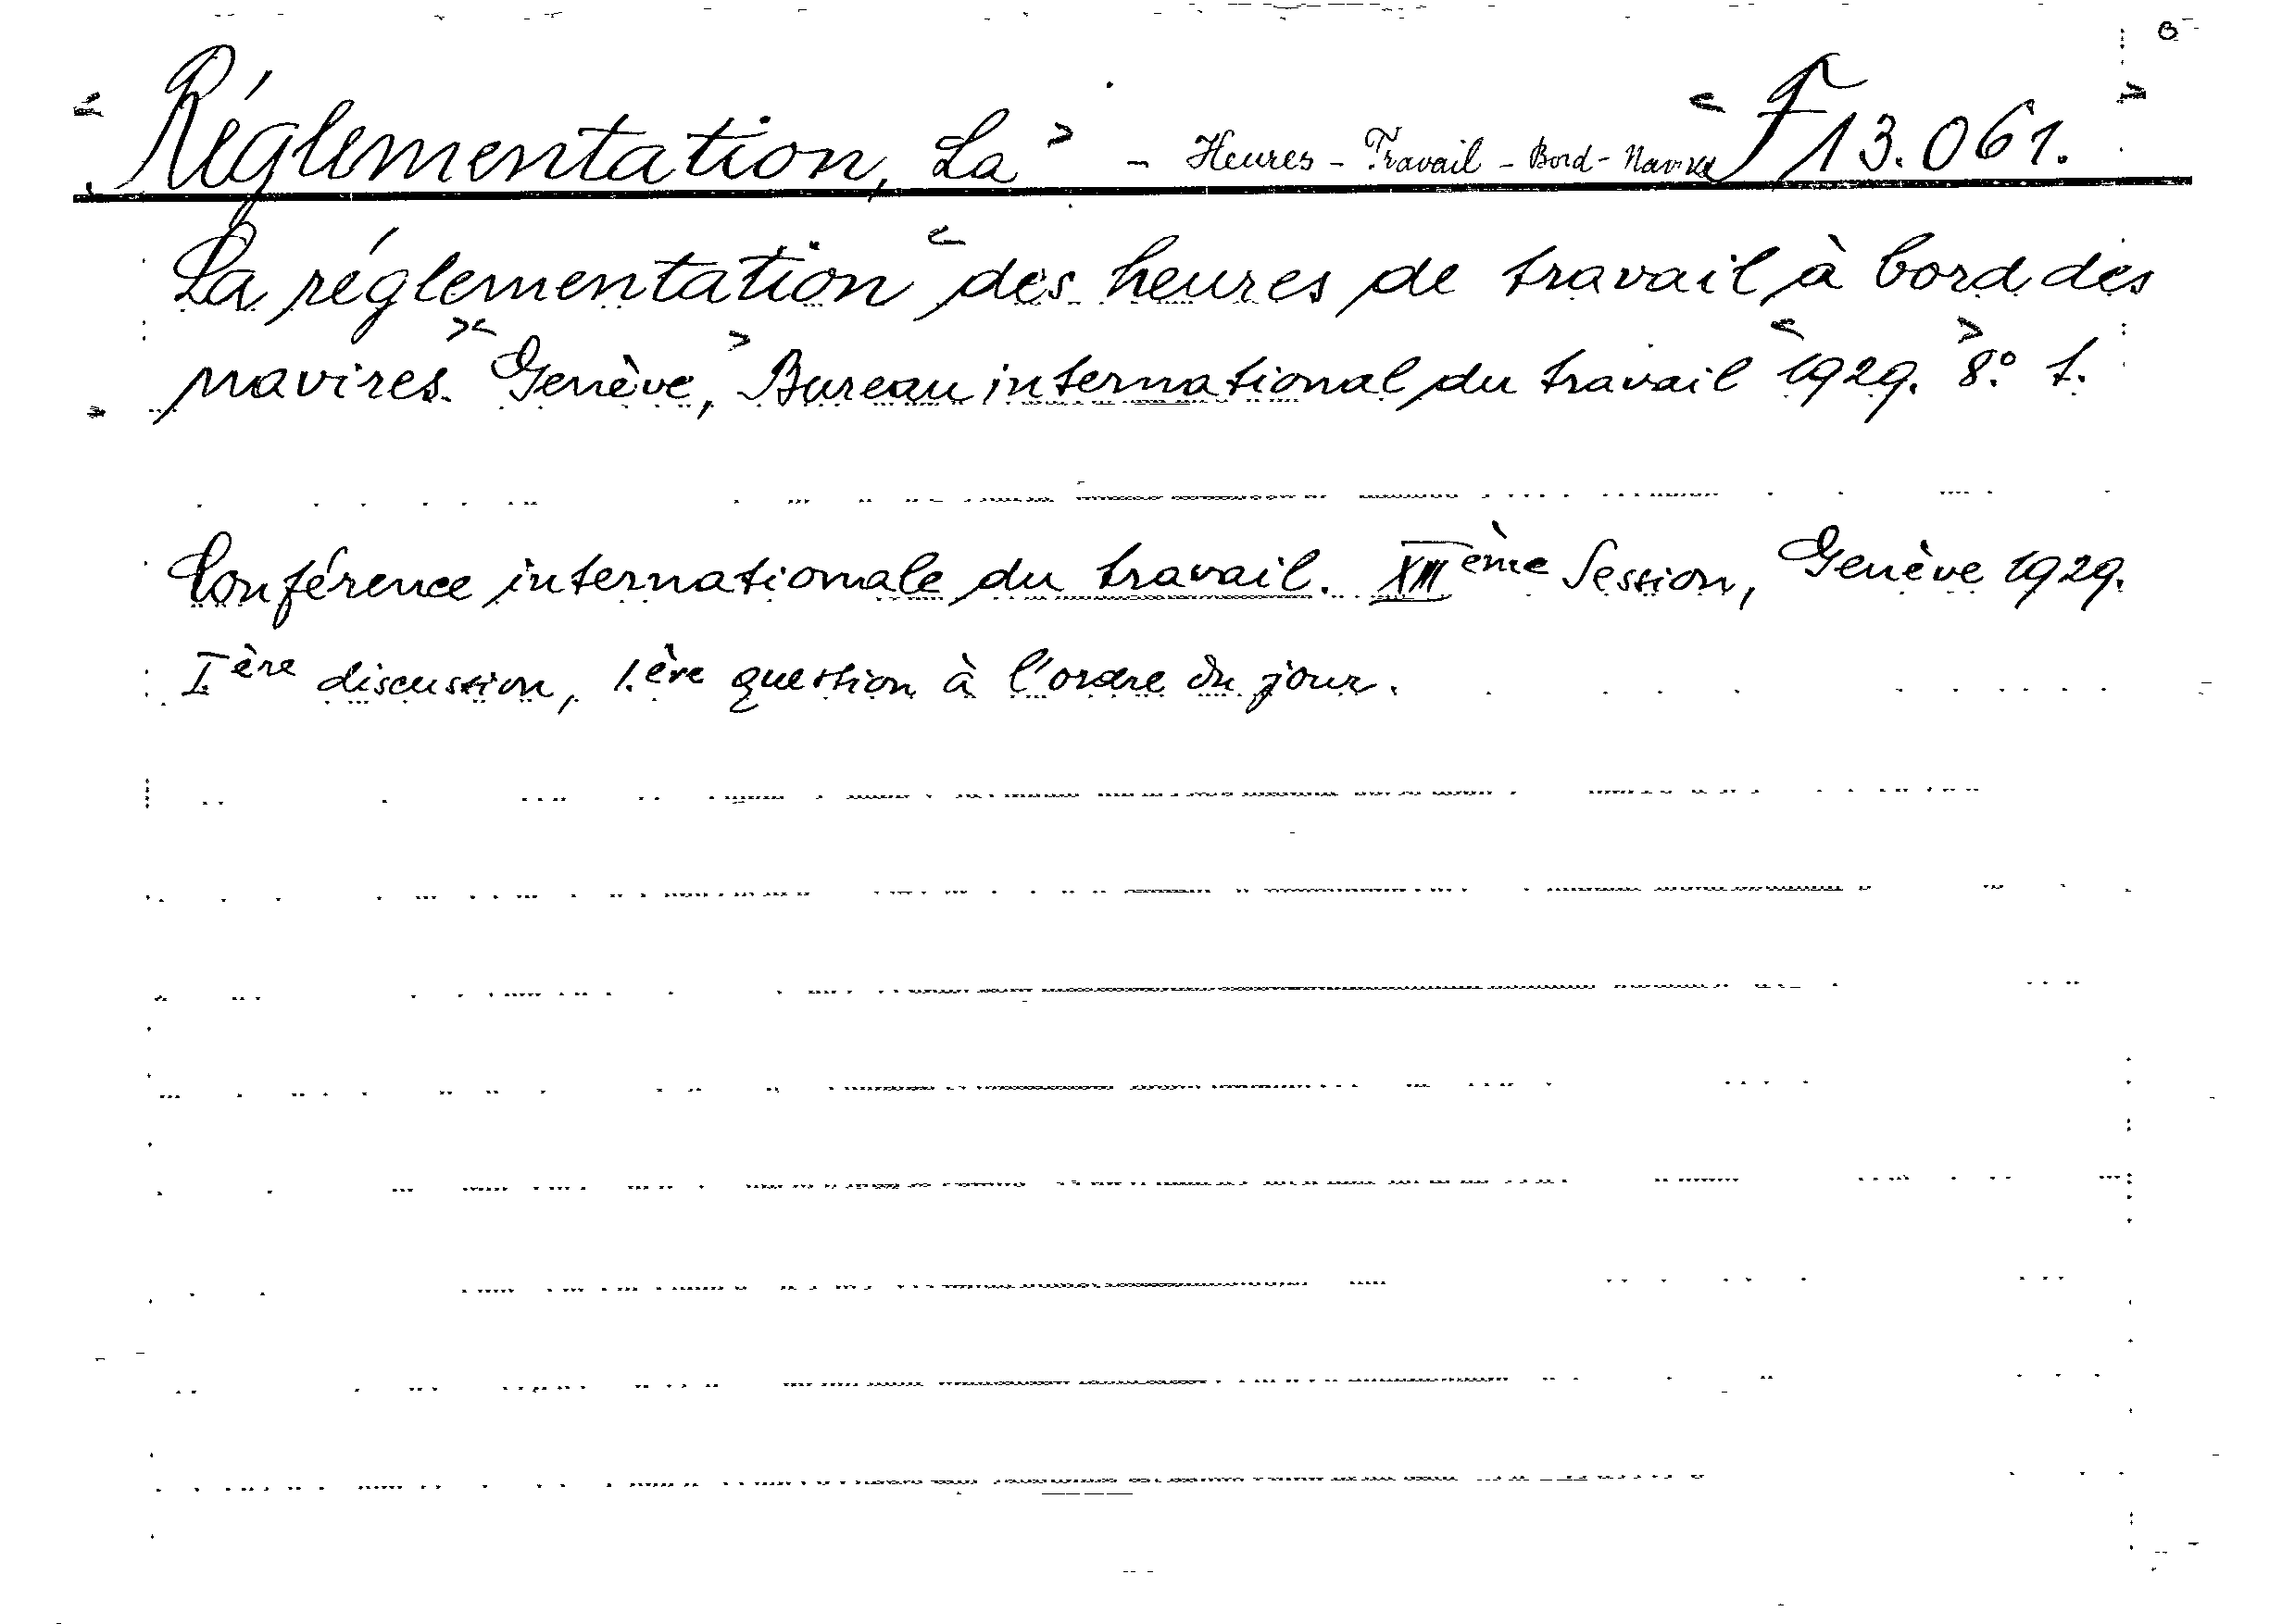 < Réglementation, La > - Heures - Travail - Bord - Navires < F 13.061. >
La réglementation < des heures de travail à bord des
navires. >< Genève, > Bureau international du travail < 1929. > 8º. f.
Conférence internationale du travail. XIIIème Session, Genève 1929.
I.ère discussion, 1.ère question à l'ordre du jour.